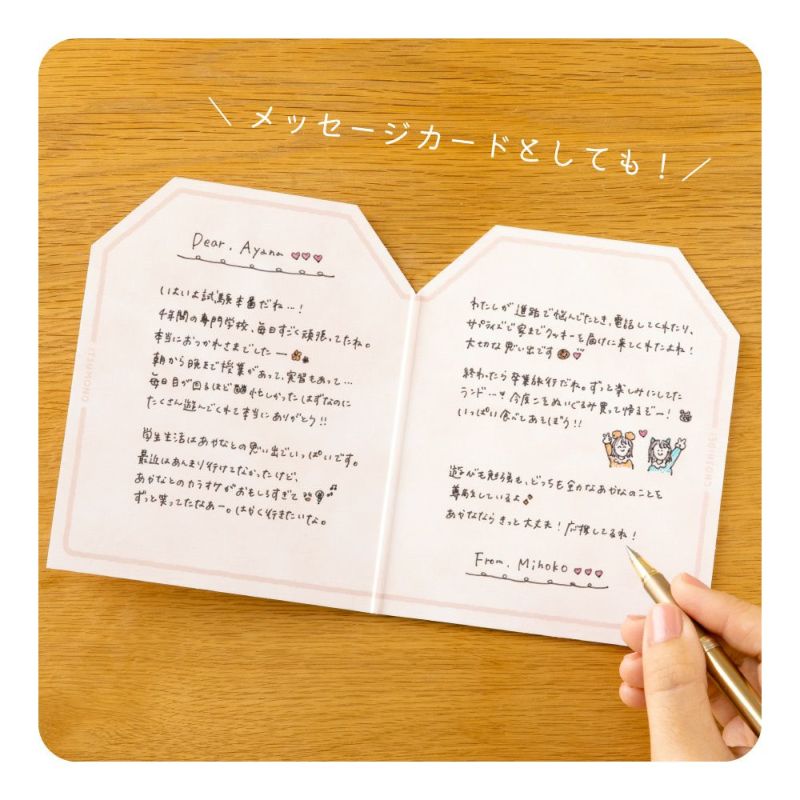 \ メッセージカードとしても！ /
Dear. Ayana
いよいよ試験本番だね…！
4年間の専門学校、毎日すごく頑張ってたね。
本当におつかれさまでしたー
朝から晩まで授業があって、実習もあって…
毎日目が回るほど忙しかったはずなのに
たくさん遊んでくれて本当にありがとう!!
学生生活はあやなとの思い出でいっぱいです。
最近はあんまり行けてなかったけど、
あやなとのカラオケがおもしろすぎて
ずっと笑ってたなあー。はやく行きたいな。
ONOMUSUBI
わたしが進路で悩んでたとき、電話してくれたり、
サプライズで家までクッキーを届けに来てくれたよね！
大切な思い出です
終わったら卒業旅行だね。ずっと楽しみにしてた
ランド…！今度こそぬいぐるみ買って帰るぞー！
いっぱい食べてあそぼう!!
遊びも勉強も、どっちも全力なあやなのことを
尊敬しているよ
あやなならきっと大丈夫！応援してるね！
From. Mihoko